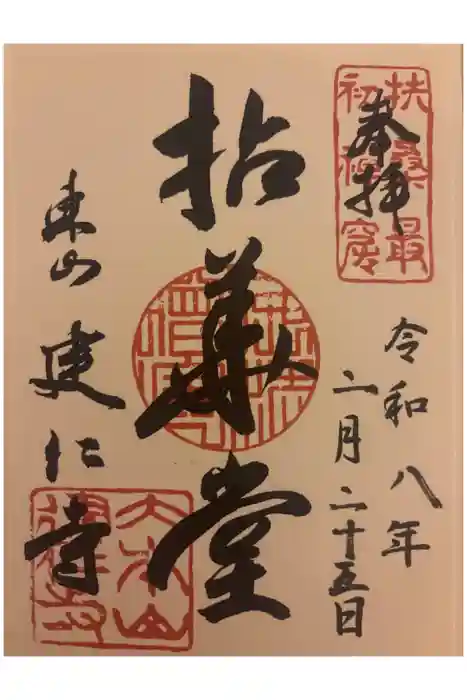 奉拝
扶桑最
初禅窟
令和八年
二月二十五日
拈華堂
東山 建仁寺
大本山
建仁寺